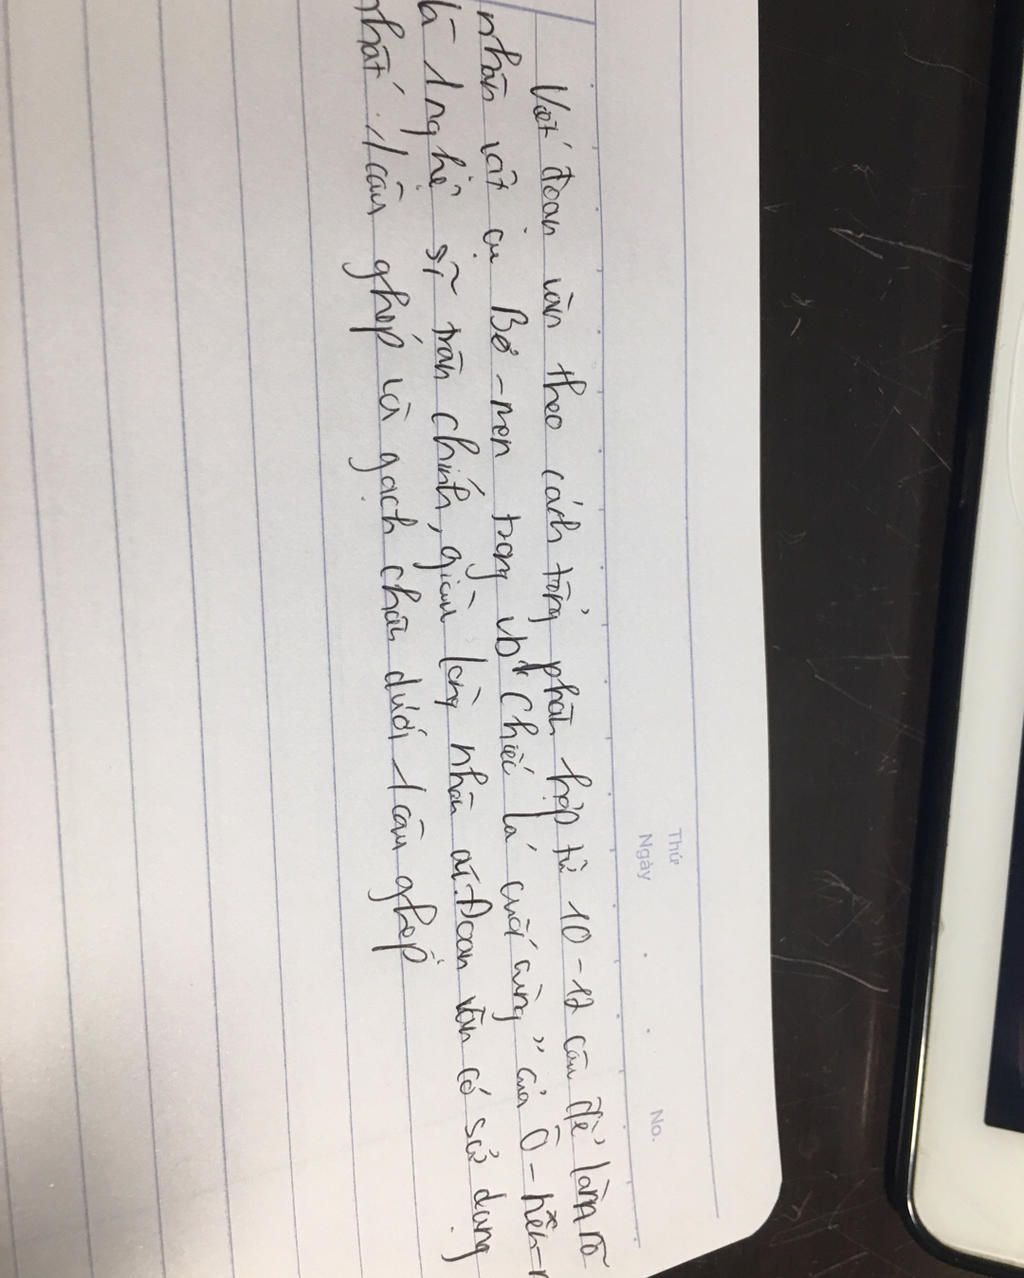 Thứ
Ngày
No.
Viết đoạn văn theo cách tổng phân hợp từ 10-12 câu để làm rõ
nhân vật cụ Bơ-men trong vb "Chiếc lá cuối cùng" của Ô-hen-r
là 1 nghệ sĩ chân chính, giàu lòng nhân ái. Đoạn văn có sử dụng
nhất 1 câu ghép và gạch chân dưới 1 câu ghép